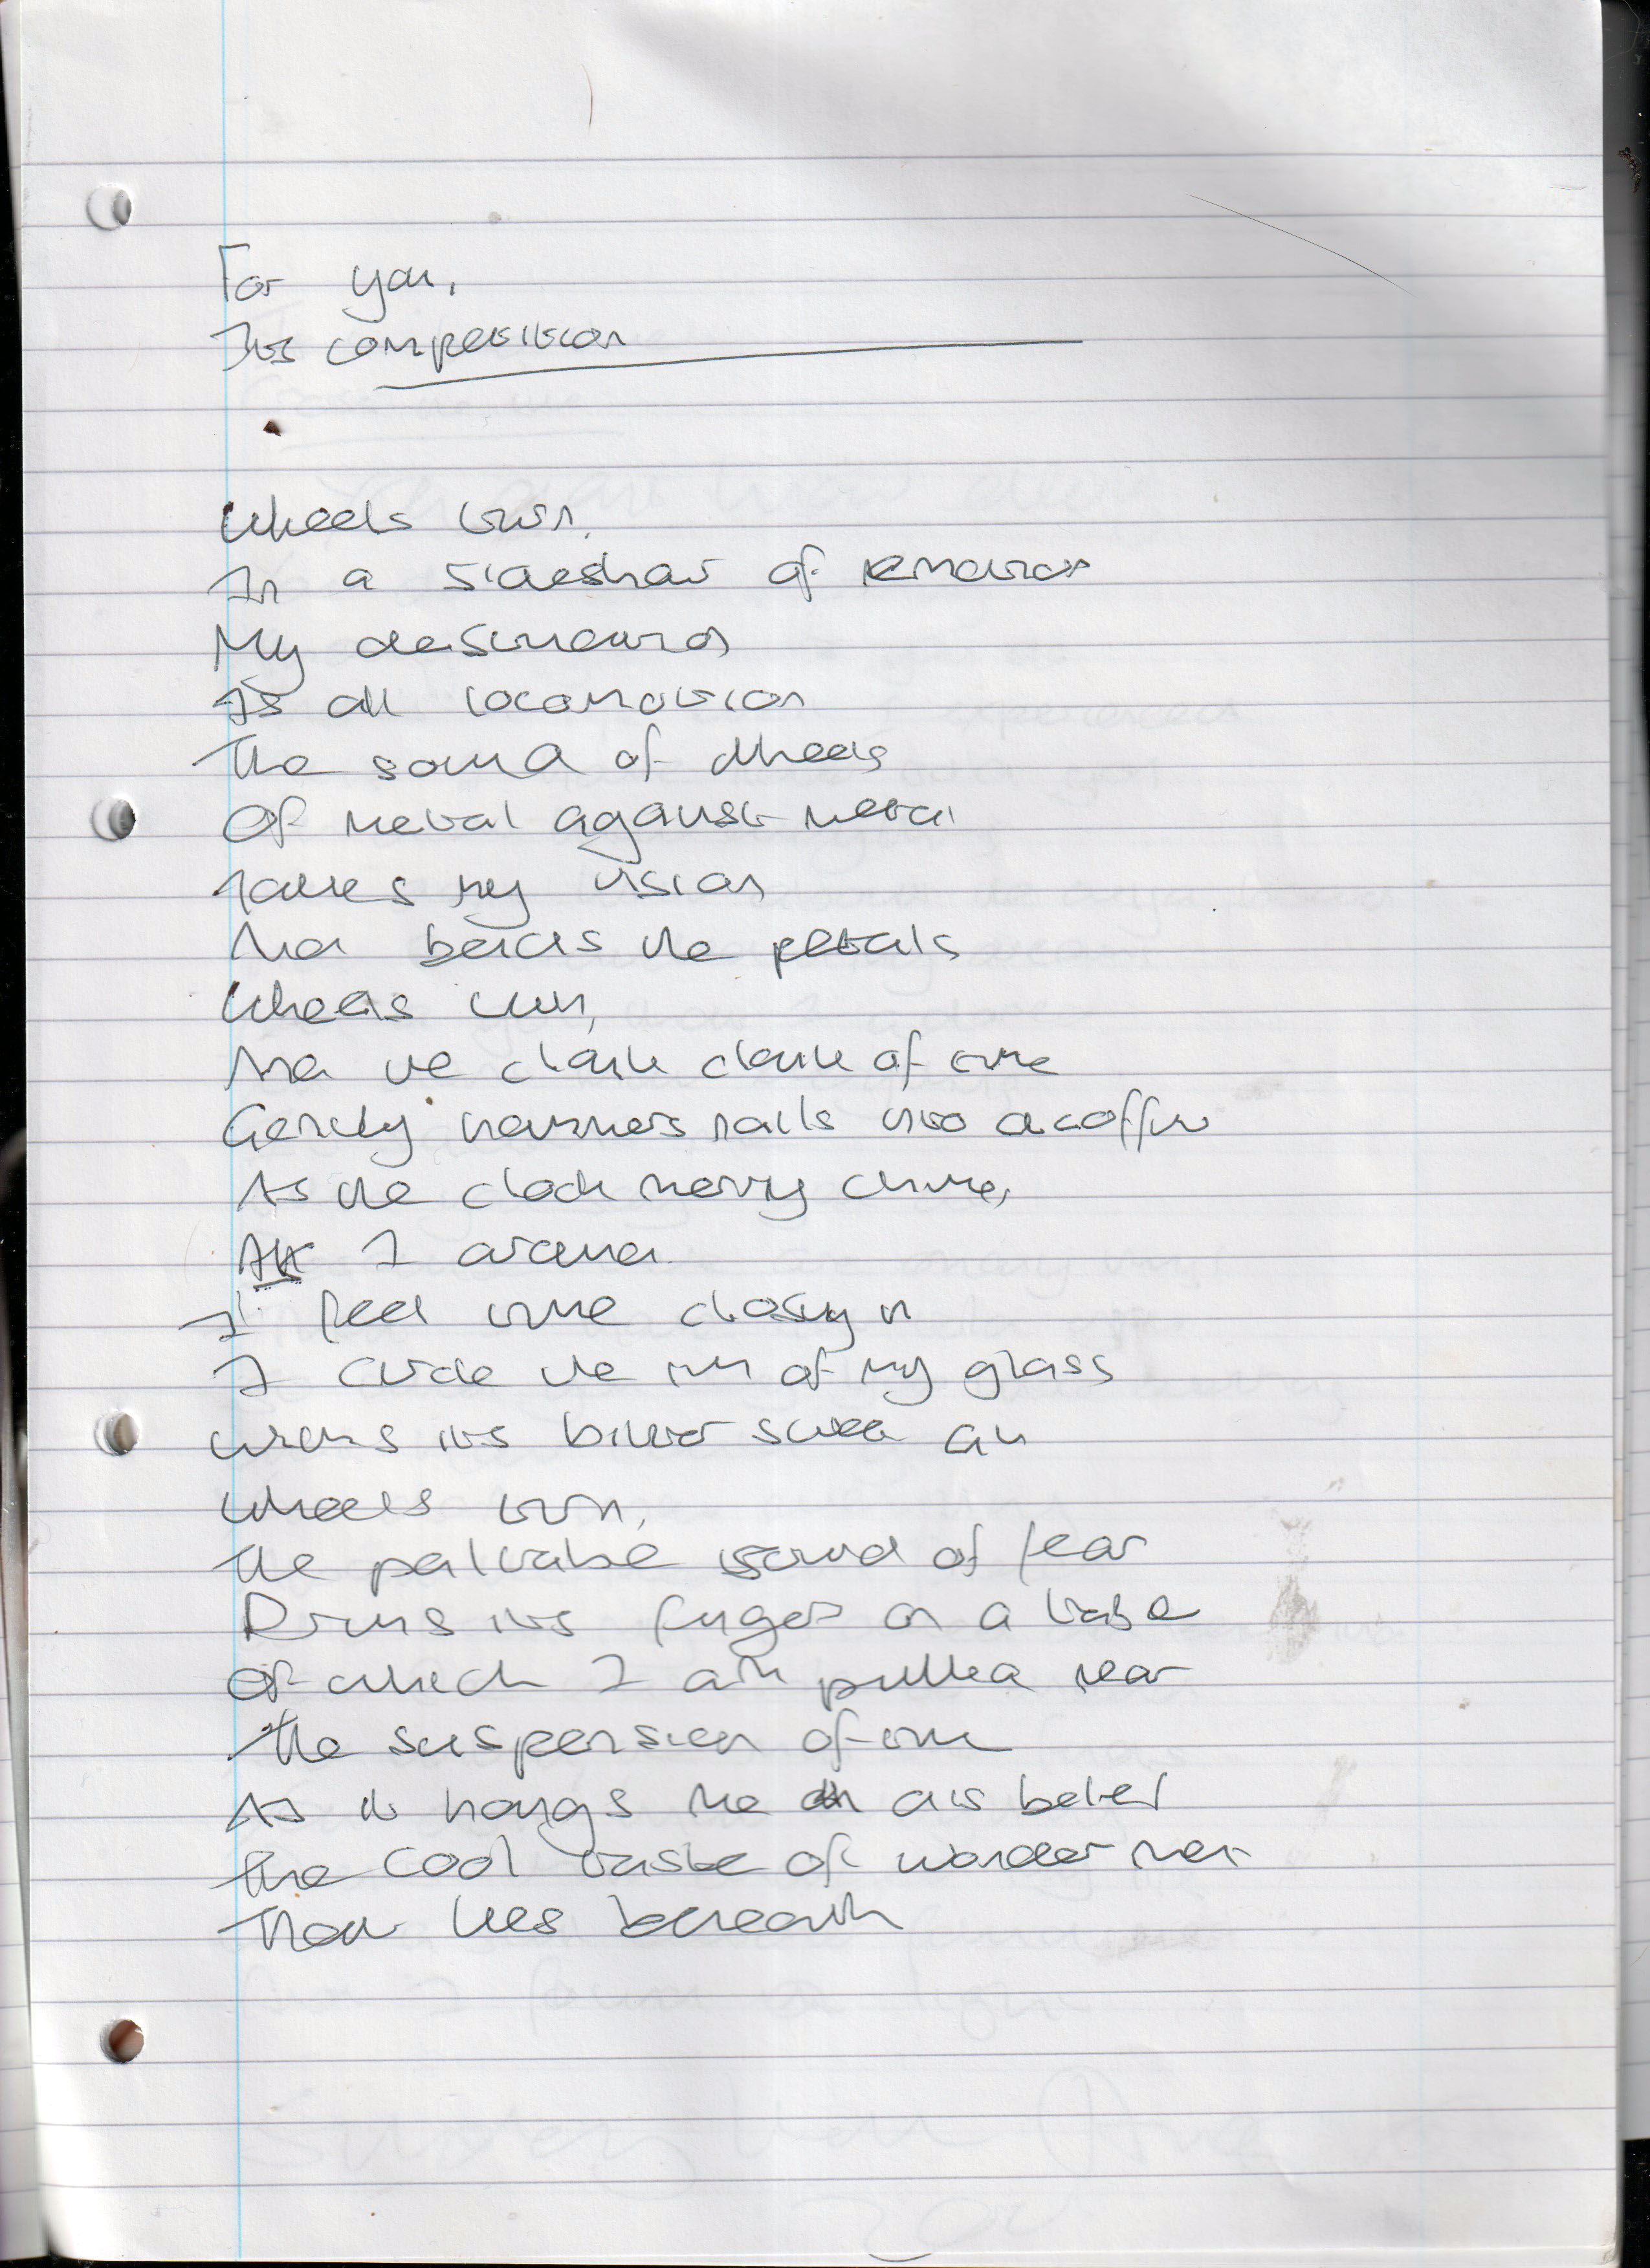 For you,
This competition
Wheels turn,
In a sideshow of emotion
My destination
Is all locomotion
The sound of wheels
Of metal against metal
Takes my vision
And bends the petals
Wheels turn,
And the clank clank of time
Gently hammers nails into a coffin
As the clock merry chime,
All I around
I feel time closing in
I circle the rim of my glass
its bitter sweet gin
Wheels turn,
The paltable sound of fear
Drums its finger on a table
Of which I am pulled near
The suspension of time
As it hangs me in dis belief
The cool taste of wonder
That lies beneath